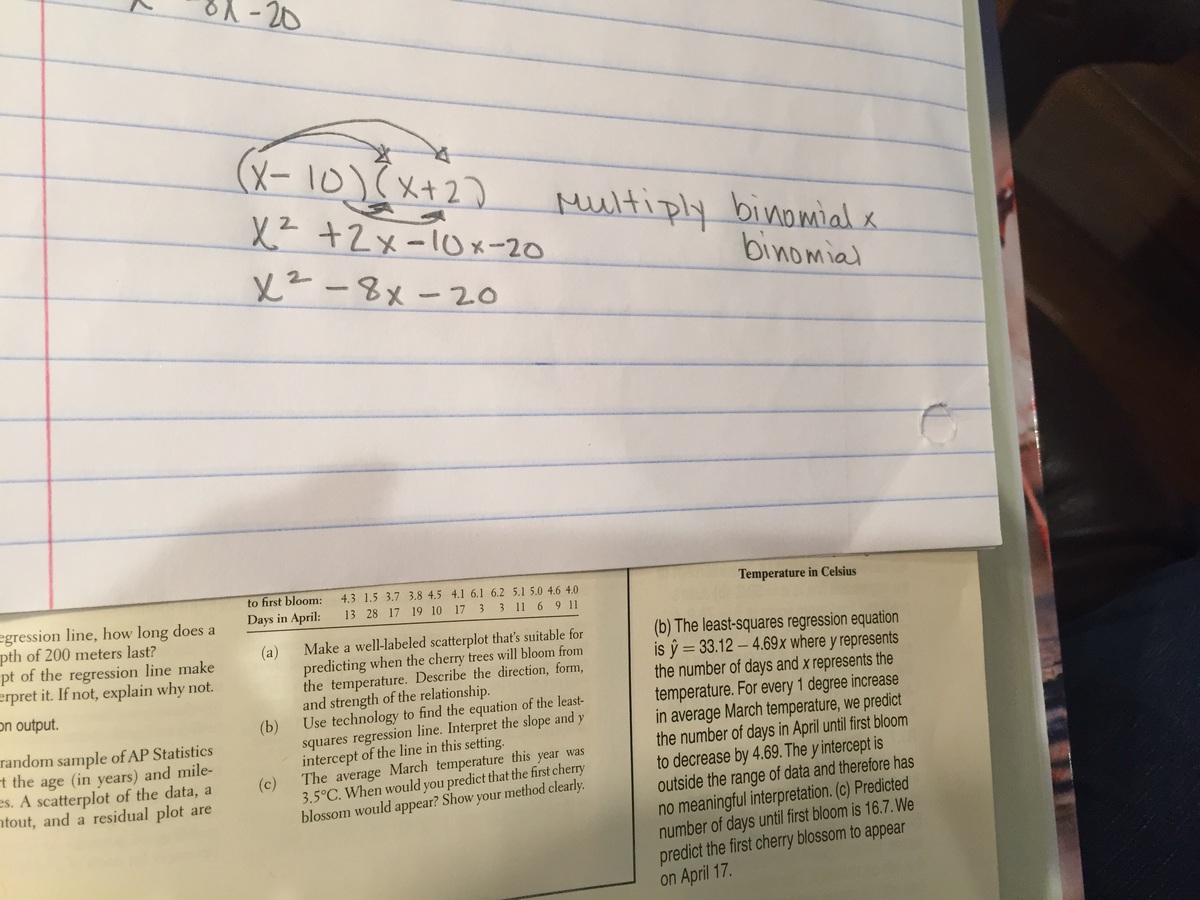 -8x-20
(x-10)(x+2)
x² +2x-10x-20
x² -8x-20
Multiply binomial x
binomial
to first bloom: 4.3 1.5 3.7 3.8 4.5 4.1 6.1 6.2 5.1 5.0 4.6 4.0
Days in April: 13 28 17 19 10 17 3 3 11 6 9 11
(a) Make a well-labeled scatterplot that's suitable for
predicting when the cherry trees will bloom from
the temperature. Describe the direction, form,
and strength of the relationship.
(b) Use technology to find the equation of the least-
squares regression line. Interpret the slope and y
intercept of the line in this setting.
(c) The average March temperature this year was
3.5°C. When would you predict that the first cherry
blossom would appear? Show your method clearly.
egression line, how long does a
pth of 200 meters last?
pt of the regression line make
erpret it. If not, explain why not.
on output.
random sample of AP Statistics
t the age (in years) and mile-
es. A scatterplot of the data, a
ntout, and a residual plot are
Temperature in Celsius
(b) The least-squares regression equation
is ŷ = 33.12 – 4.69x where y represents
the number of days and x represents the
temperature. For every 1 degree increase
in average March temperature, we predict
the number of days in April until first bloom
to decrease by 4.69. The y intercept is
outside the range of data and therefore has
no meaningful interpretation. (c) Predicted
number of days until first bloom is 16.7. We
predict the first cherry blossom to appear
on April 17.